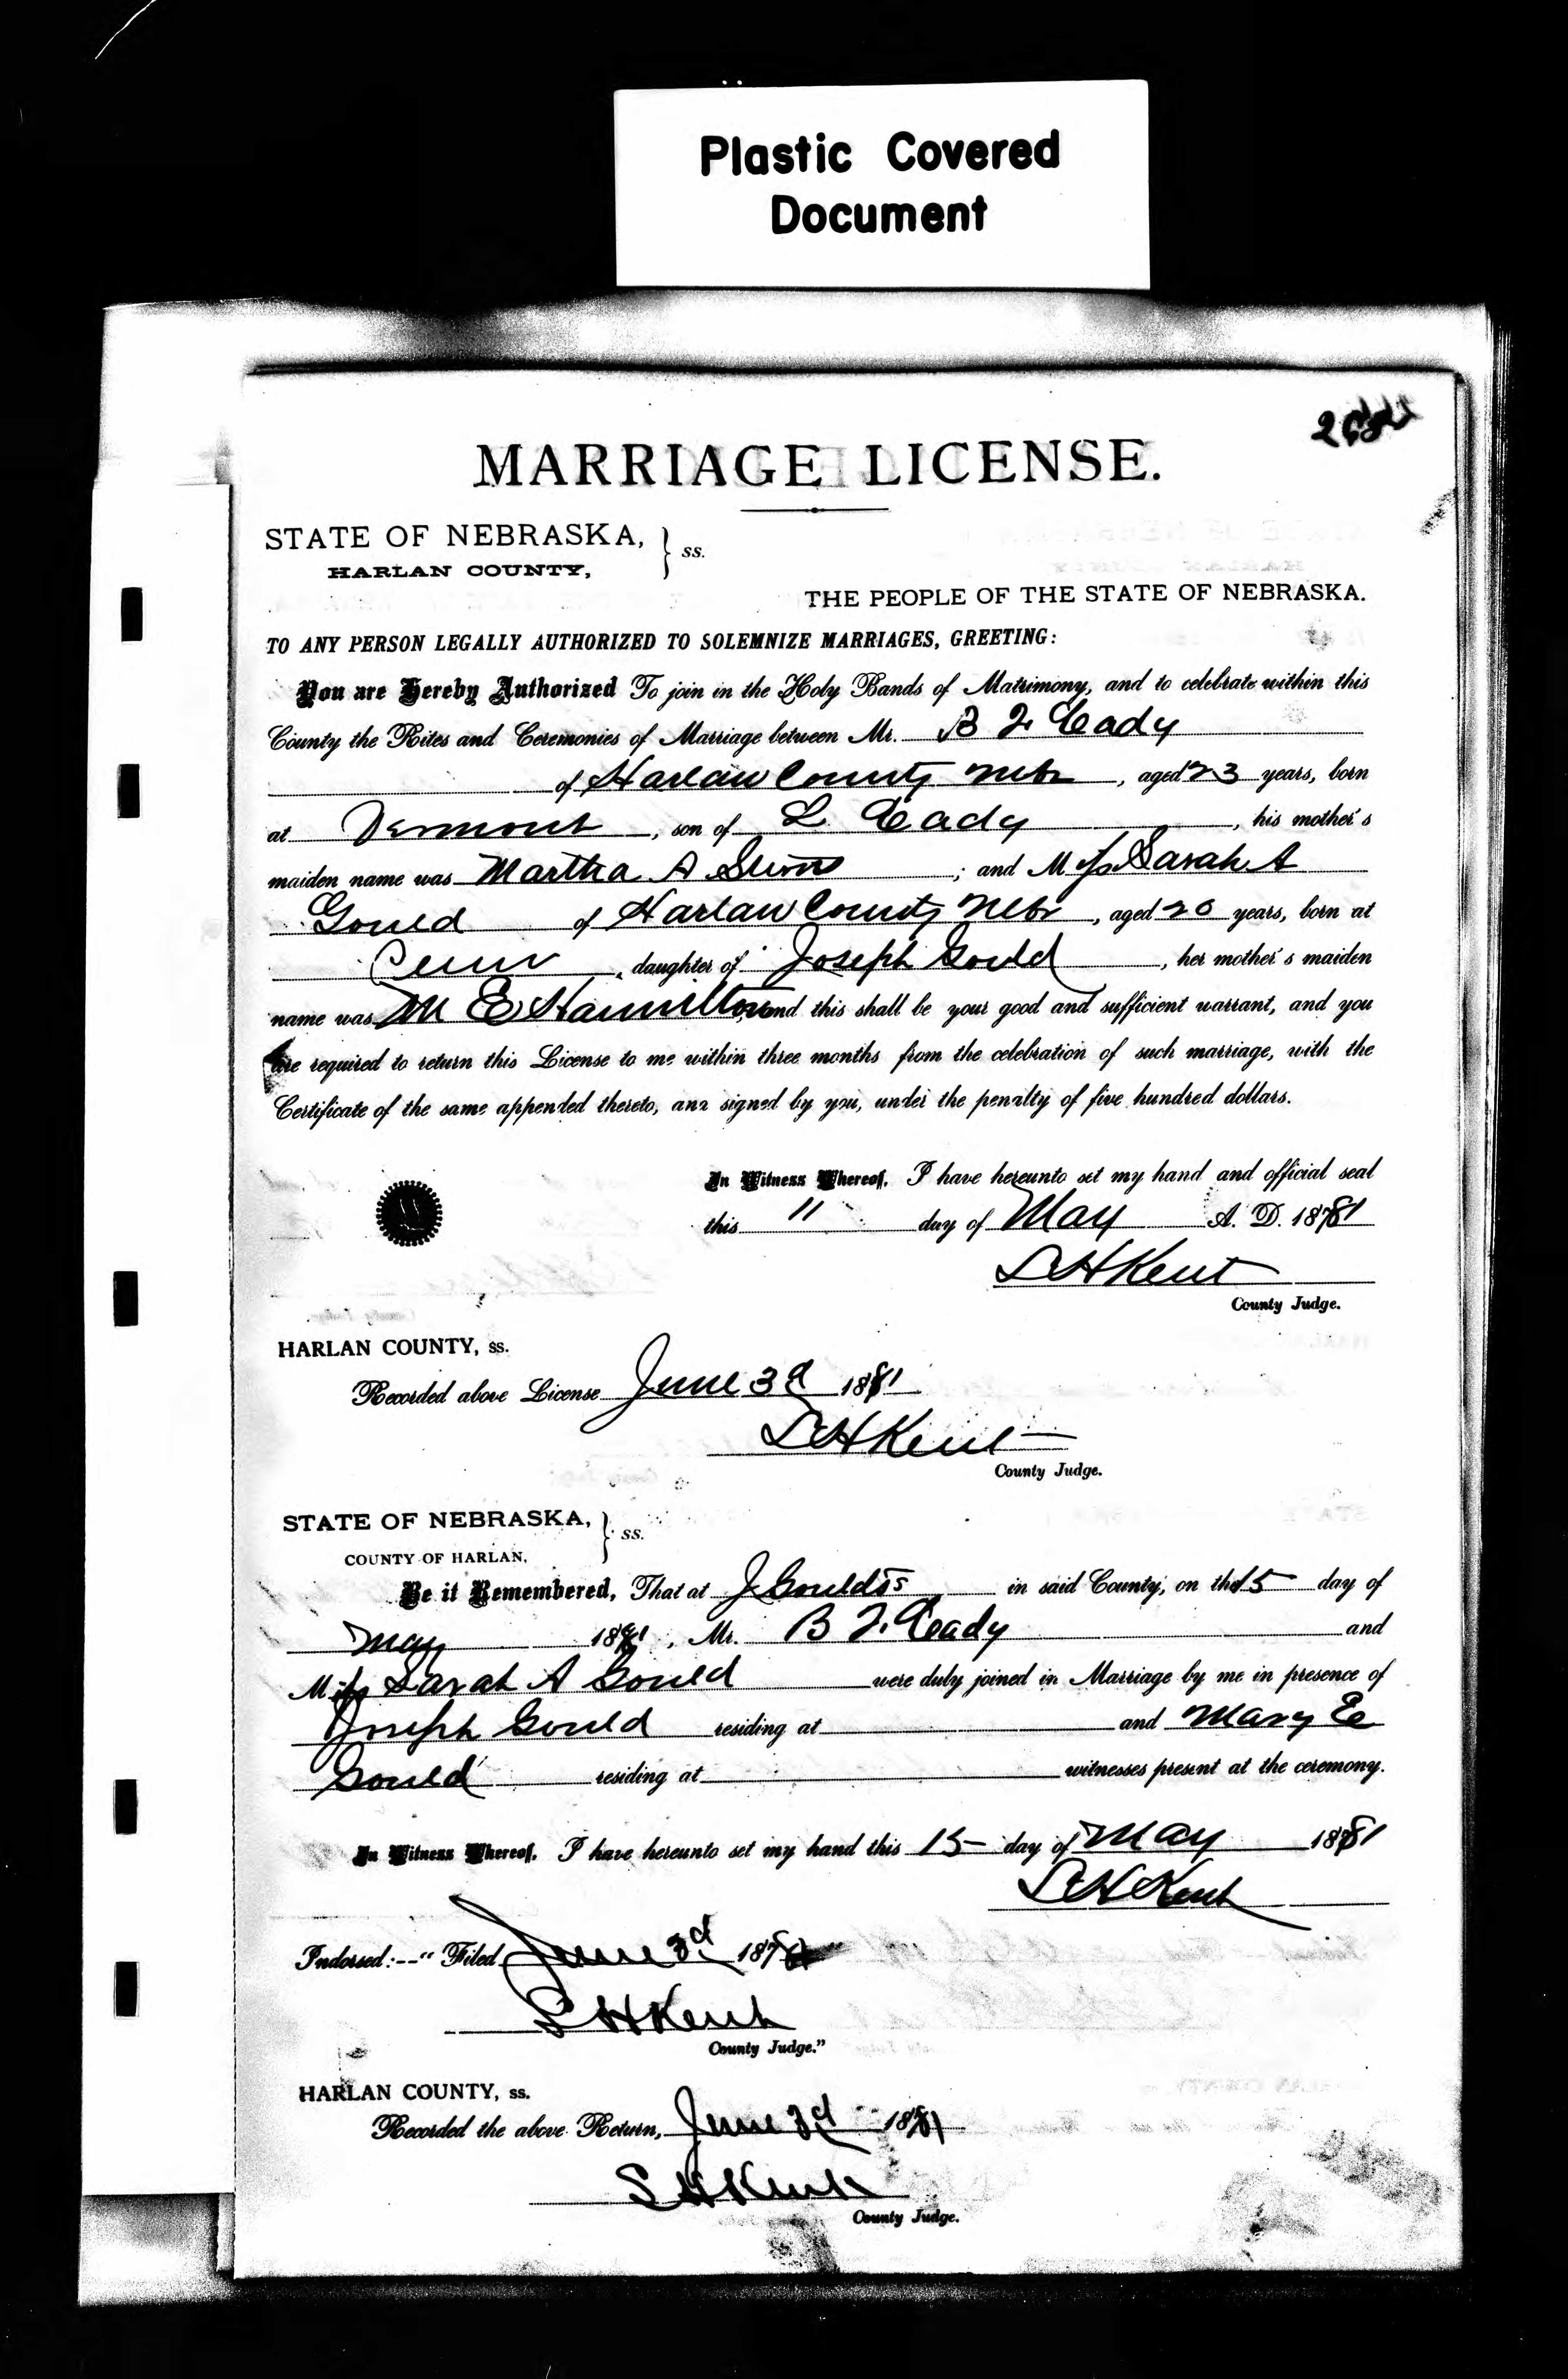 Plastic Covered
Document
MARRIAGE LICENSE.
STATE OF NEBRASKA, } ss.
HARLAN COUNTY,
THE PEOPLE OF THE STATE OF NEBRASKA.
TO ANY PERSON LEGALLY AUTHORIZED TO SOLEMNIZE MARRIAGES, GREETING:
You are Hereby Authorized To join in the Holy Bands of Matrimony, and to celebrate within this
County the Rites and Ceremonies of Marriage between Mr. B F Cady
of Harlan County Nebr, aged 23 years, born
at Vermont, son of L Cady, his mother's
maiden name was Martha A; and Miss Sarah A
Gould of Harlan County Nebr, aged 20 years, born at
Penn, daughter of Joseph Gould, her mother's maiden
name was M E Hamilton and this shall be your good and sufficient warrant, and you
are required to return this License to me within three months from the celebration of such marriage, with the
Certificate of the same appended thereto, and signed by you, under the penalty of five hundred dollars.
In Witness Whereof, I have hereunto set my hand and official seal
this 11 day of May A. D. 1881
S H Kent
County Judge.
HARLAN COUNTY, ss.
Recorded above License June 3d 1881
S H Kent
County Judge.
STATE OF NEBRASKA, } ss.
COUNTY OF HARLAN,
Be it Remembered, That at J Goulds in said County, on the 15 day of
May 1881, Mr. B F. Cady and
Miss Sarah A Gould were duly joined in Marriage by me in presence of
Joseph Gould residing at and Mary E
Gould residing at witnesses present at the ceremony.
In Witness Whereof, I have hereunto set my hand this 15 day of May 1881
S H Kent
Indorsed:--" Filed June 3d 1881
S H Kent
County Judge."
HARLAN COUNTY, ss.
Recorded the above Return, June 3d 1881
S H Kent
County Judge.